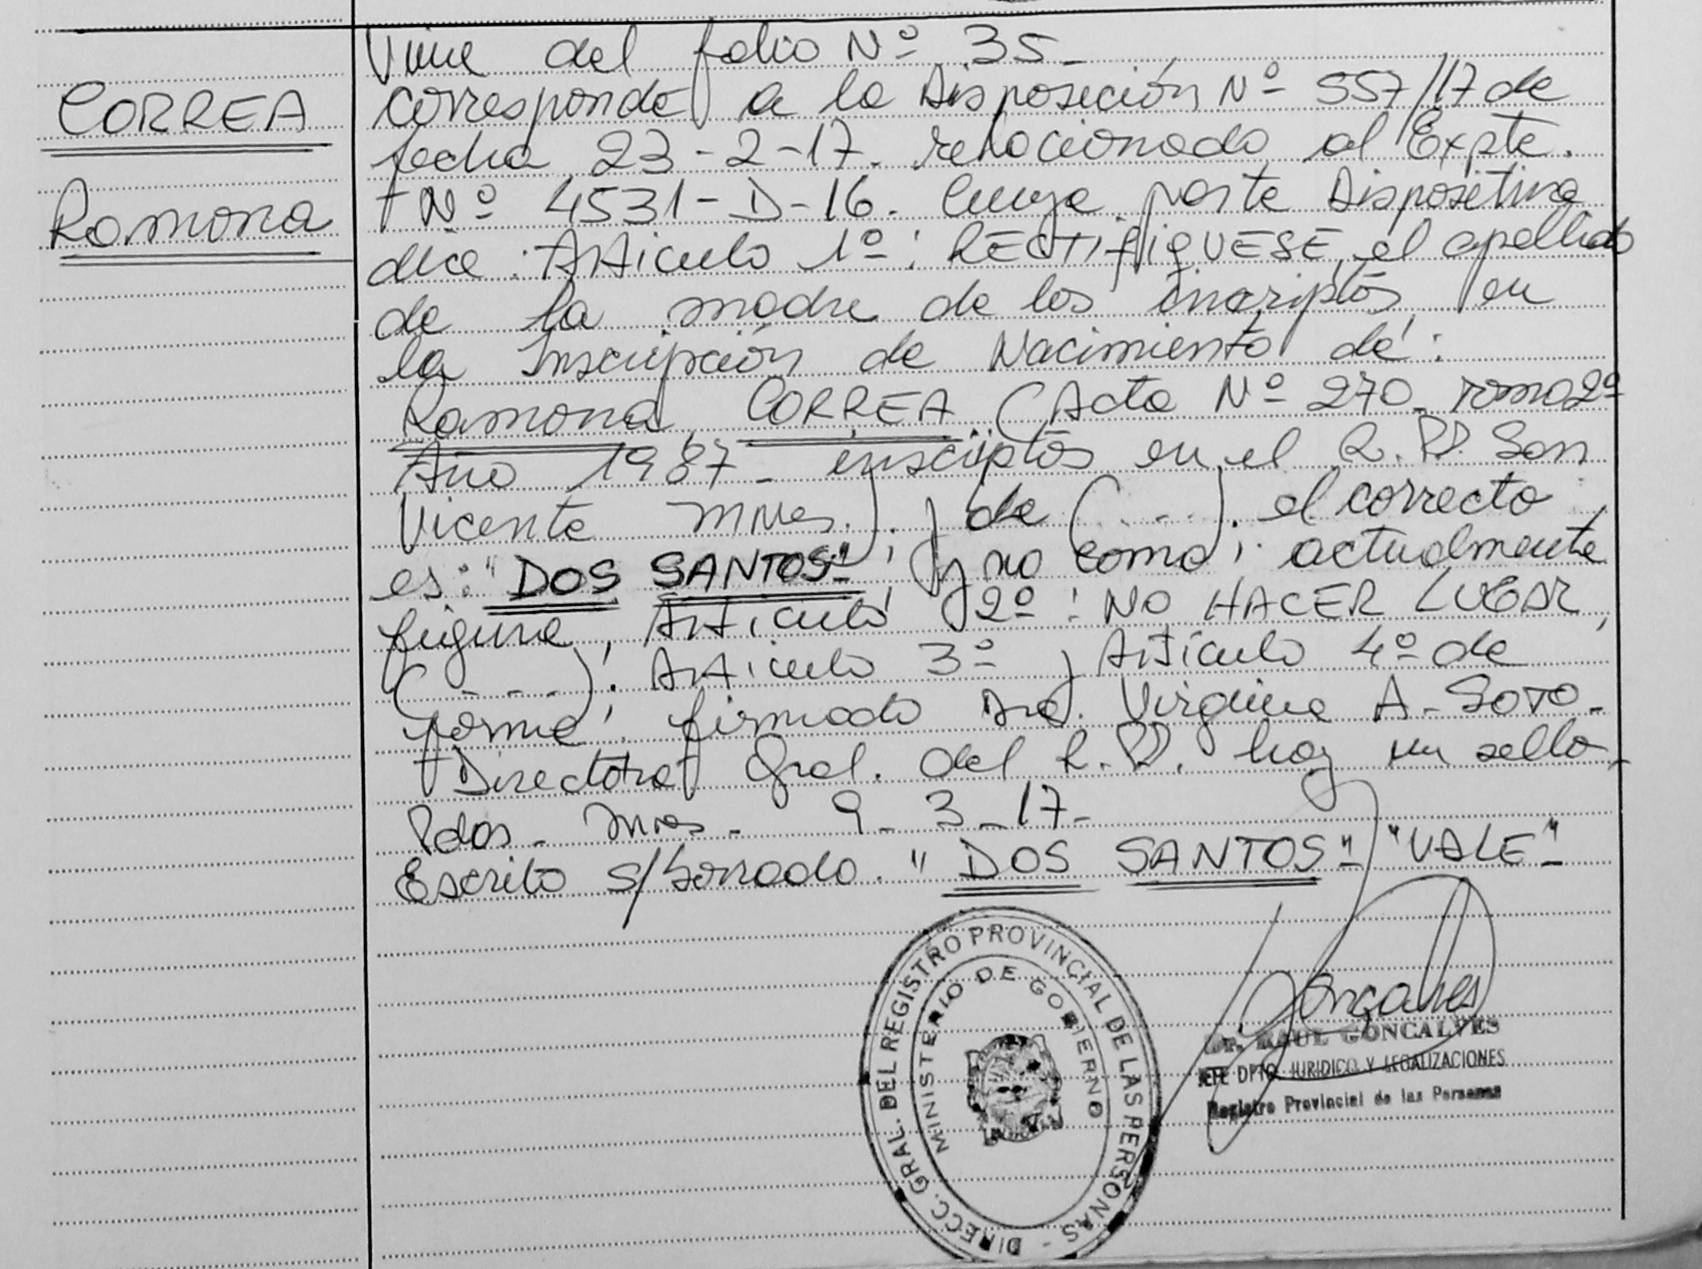 CORREA
Ramona
Viene del folio Nº 35-
corresponde a la Disposición Nº 557/17 de
fecha 23-2-17. relacionado al Expte.
Nº 4531-D-16. Cuya parte Dispositiva
dice: Artículo 1º: RECTIFIQUESE, el apellido
de la madre de los inscriptos en
la Inscripción de Nacimiento de:
Ramona CORREA (Acta Nº 270- tomo 2º
Año 1987- inscriptos en el R.P. San
Vicente Mnes.); y de (....). el correcto
es: "DOS SANTOS"; y no como: actualmente
figura, Artículo 2º: NO HACER LUGAR,
(....). Artículo 3º y Artículo 4º de
forma: firmado Dra. Virginia A. SOTO-
Directora Gral. del R.P. hay un sello-
Pdas- Mnes- 9-3-17-
Escrito s/borrado. "DOS SANTOS" "VALE"
DIRECC. GRAL. DEL REGISTRO PROVINCIAL DE LAS PERSONAS -
MINISTERIO DE GOBIERNO
Goncalves
Dr. RAUL GONCALVES
JEFE DPTO. JURIDICO Y LEGALIZACIONES
Registro Provincial de las Personas